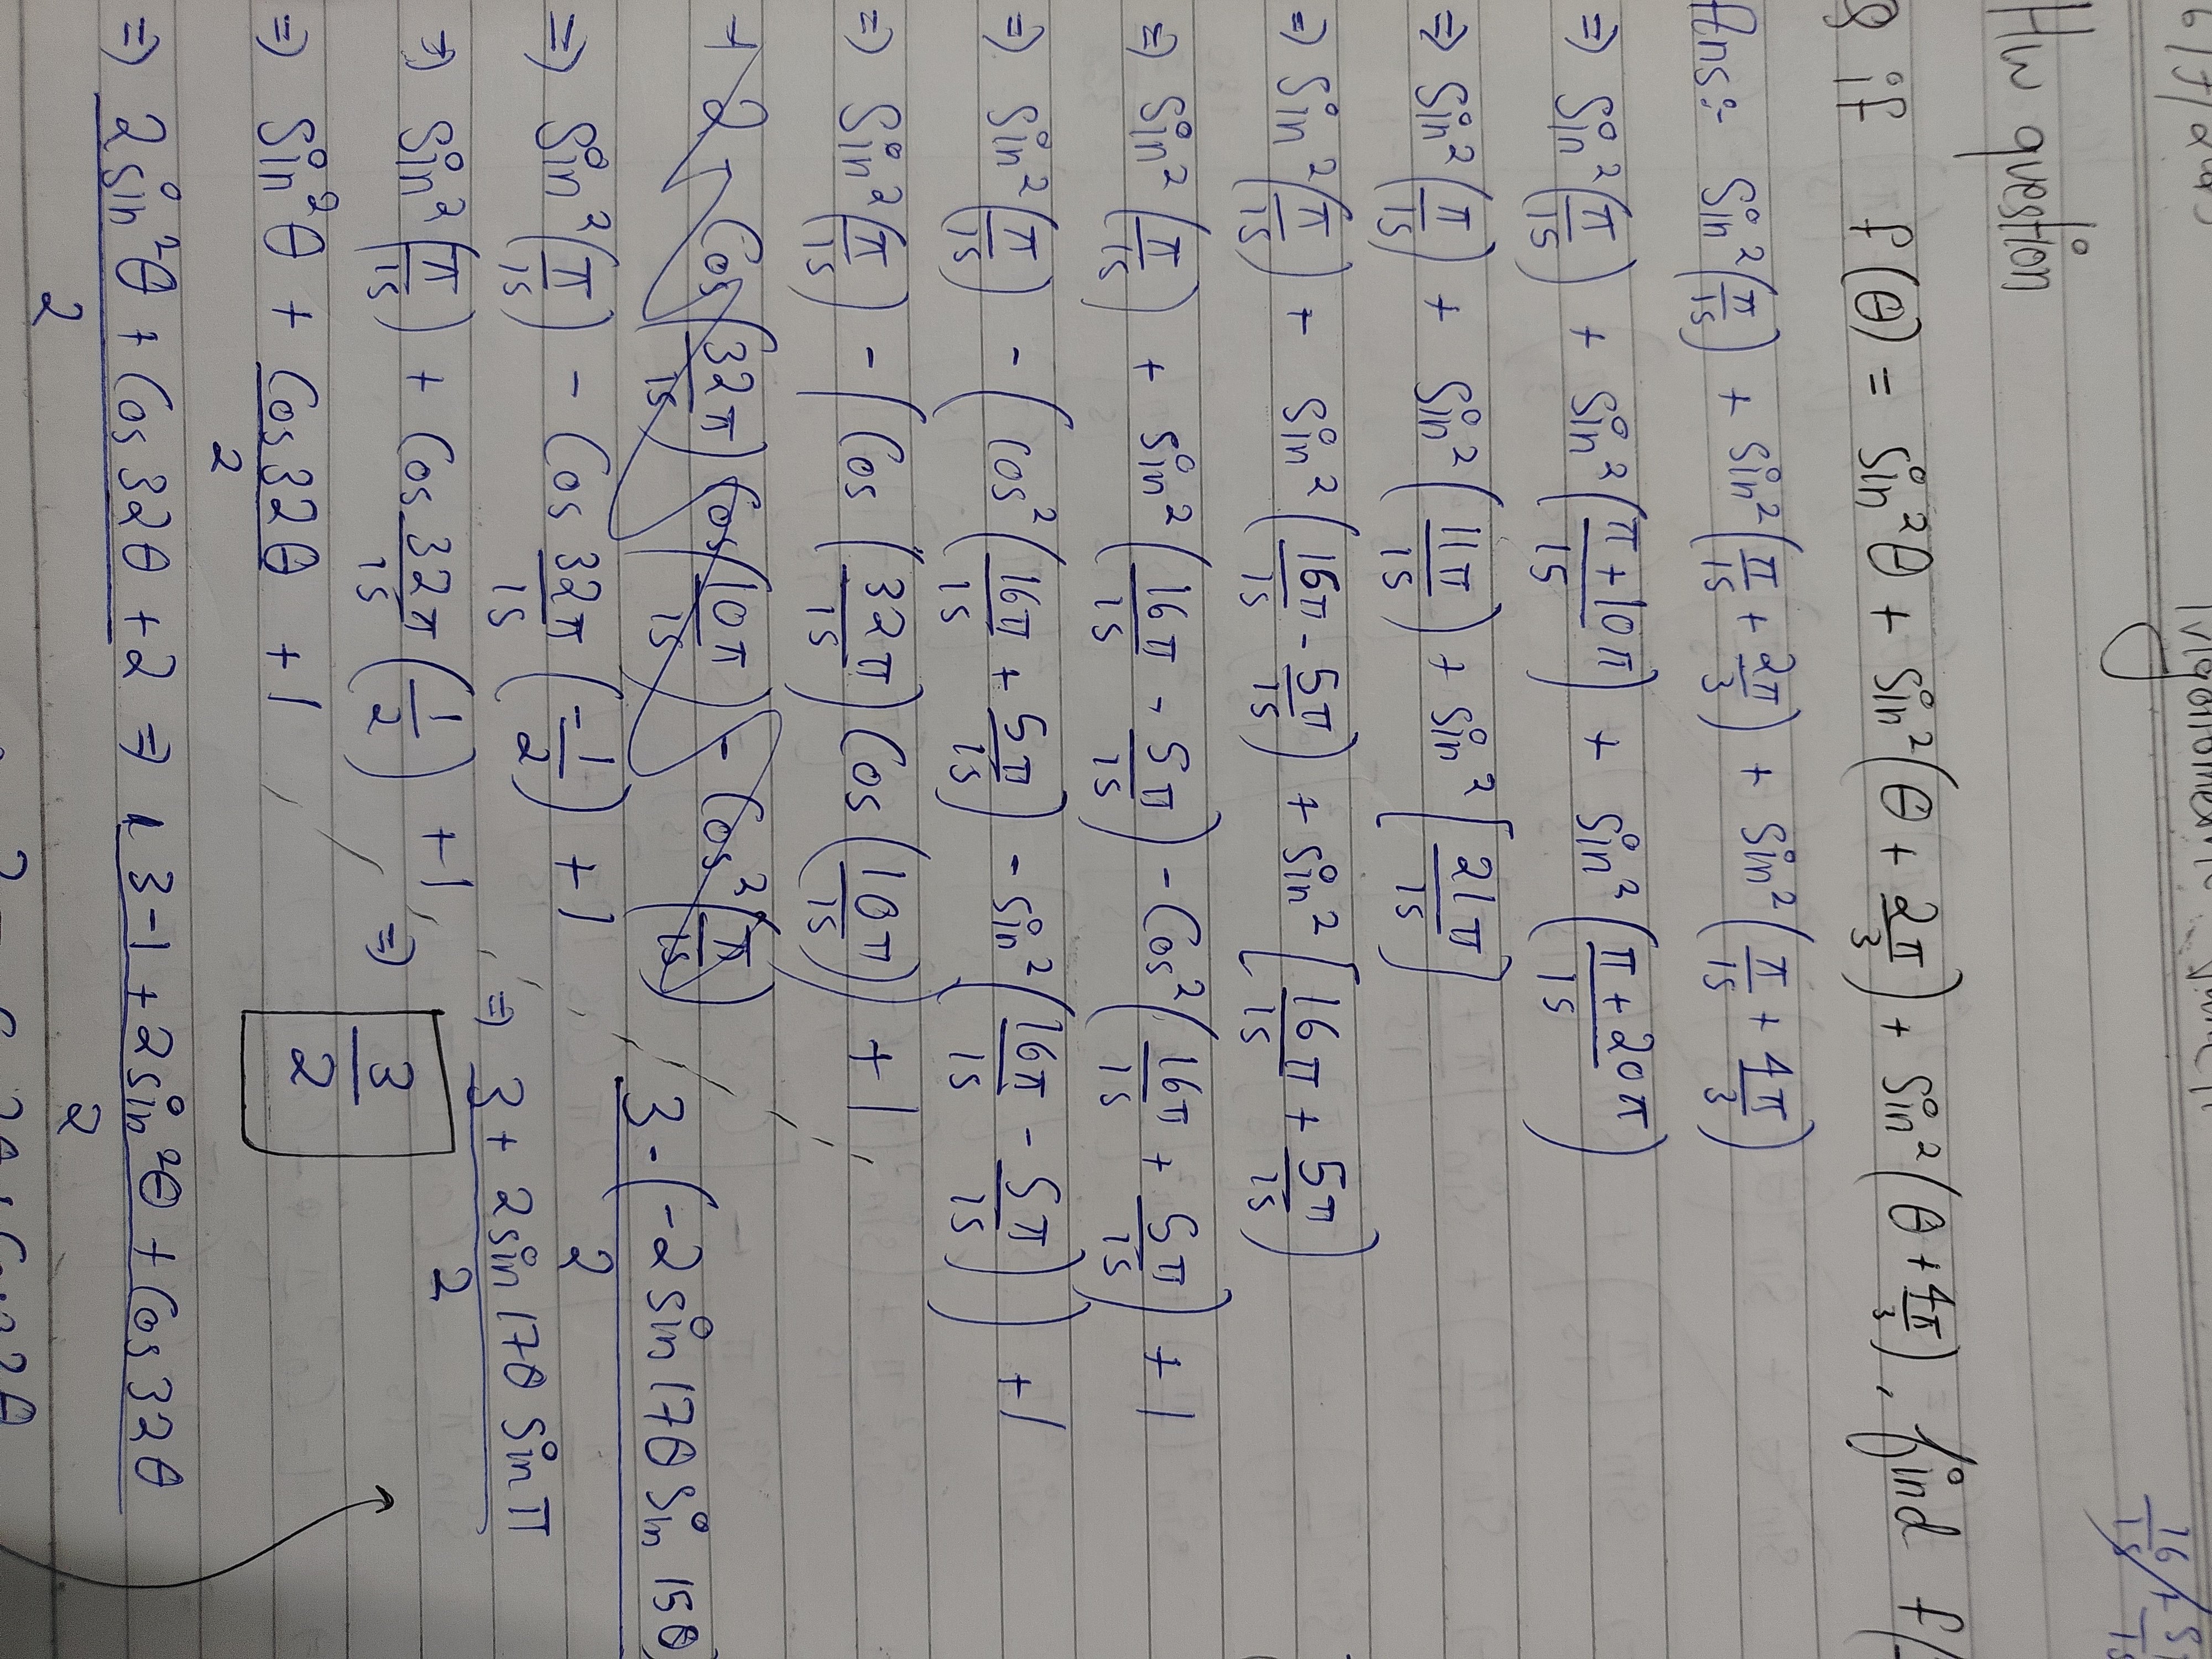 Hw question
Q if f(θ) = sin²θ + sin²(θ + 2π/3) + sin²(θ + 4π/3), find f(
Ans:- sin²(π/15) + sin²(π/15 + 2π/3) + sin²(π/15 + 4π/3)
⇒ sin²(π/15) + sin²(π+10π/15) + sin²(π+20π/15)
⇒ sin²(π/15) + sin²(11π/15) + sin²[21π/15]
⇒ sin²(π/15) + sin²(16π/15 - 5π/15) + sin²[16π/15 + 5π/15)
⇒ sin²(π/15) + sin²(16π/15 - 5π/15) - cos²(16π/15 + 5π/15) + 1
⇒ sin²(π/15) - (cos²(16π/15 + 5π/15) - sin²(16π/15 - 5π/15)) + 1
⇒ sin²(π/15) - (cos(32π/15) cos(10π/15)) + 1
cos(32π/15) cos(10π/15) - cos²(π/15)
⇒ sin²(π/15) - cos 32π/15 (-1/2) + 1
⇒ sin²(π/15) + cos 32π/15 (1/2) + 1
⇒ sin²θ + cos32θ/2 + 1
⇒ 2sin²θ + cos32θ + 2/2 ⇒ 3-1+2sin²θ + cos32θ/2
3-(-2sin17θ sin15θ)/2
⇒ 3 + 2sin17θ sinπ/2
⇒ 3/2